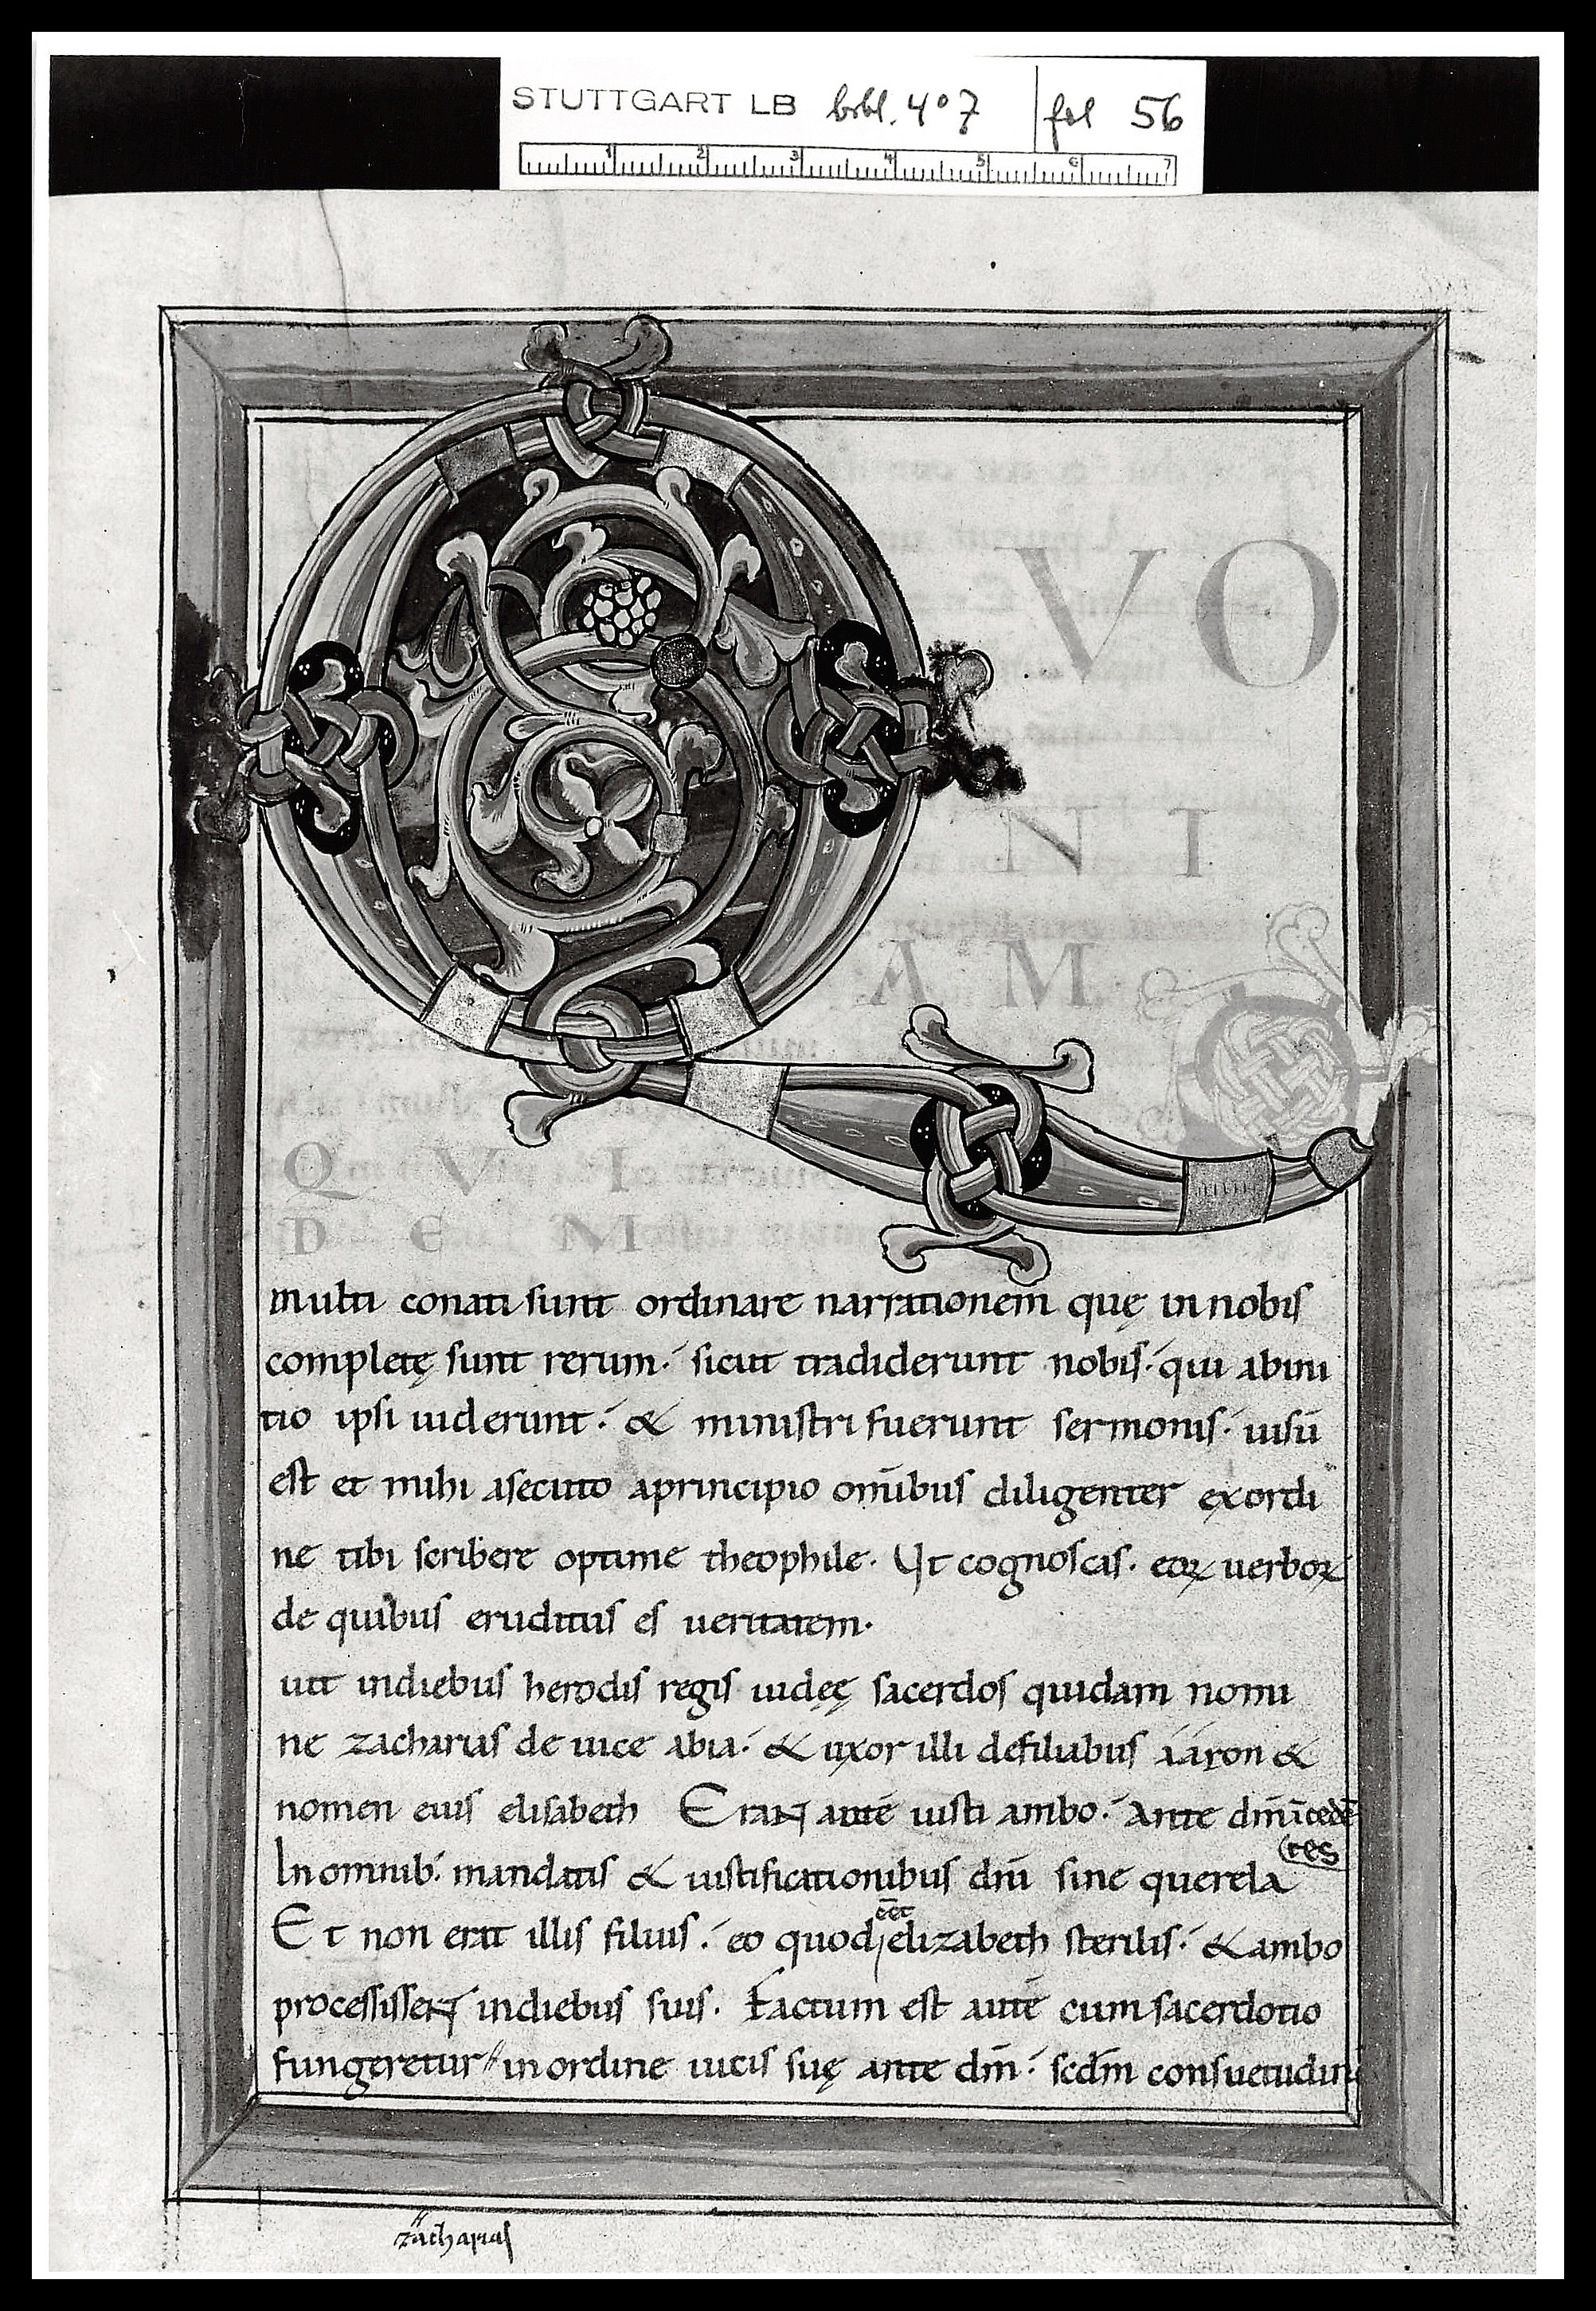 STUTTGART LB bibl. 4° 7 fol 56
1 2 3 4 5 6 7
Q VO
N I
A M
Q V I
D E M
multi conati sunt ordinare narrationem quę in nobis
completę sunt rerum. sicut tradiderunt nobis. qui abini
tio ipsi uiderunt. & ministri fuerunt sermonis. uisū
est et mihi asecuto aprincipio om̄ibus diligenter exordi
ne tibi scribere optime theophile. Ut cognoscas. eoꝝ uerboꝝ
de quibus eruditus es ueritatem.
uit indiebus herodis regis iudeę sacerdos quidam nomi
ne zacharias de uice abia. & uxor illi defiliabus ááron &
nomen eius elisabeth Erant autē iusti ambo. Ante dm̄ īcedē
(res
In omnib. mandatis & iustificationibus dn̄i sine querela
Et non erat illis filius. eo quod eēt elizabeth sterilis. & ambo
processissent indiebus suis. Factum est autē cum sacerdotio
fungeretur // in ordine uicis suę ante dm̄. scd̄m consuetudinē
// zacharias